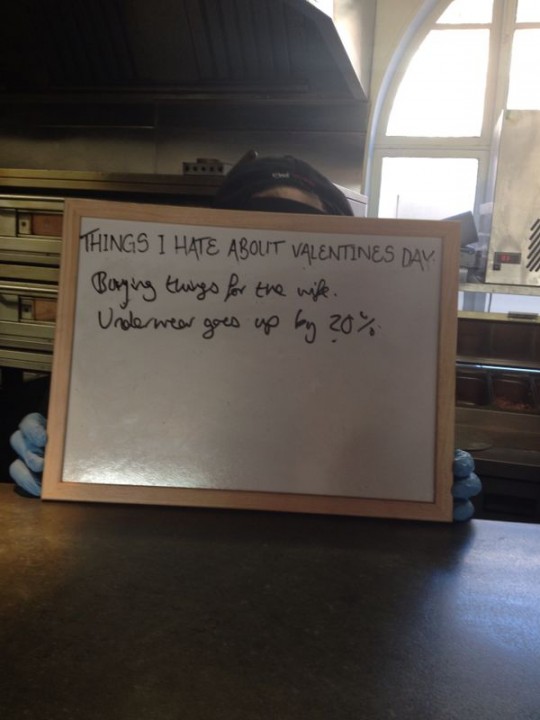 THINGS I HATE ABOUT VALENTINES DAY.
Buying things for the wife.
Underwear goes up by 20%.